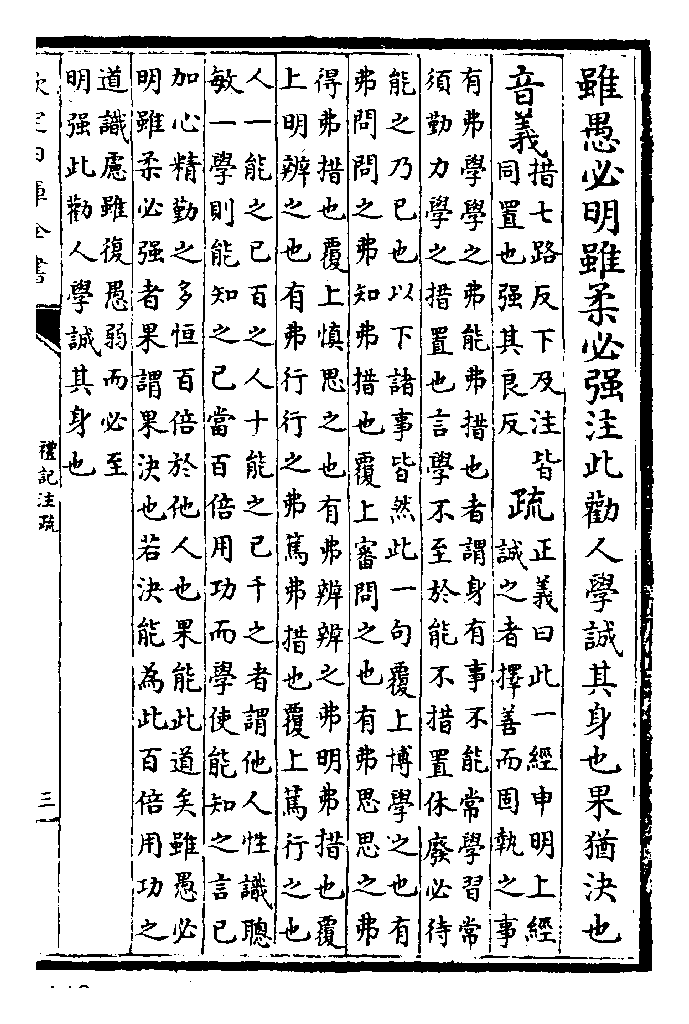 雖愚必明雖柔必强注此勸人學誠其身也果猶決也
音義措七路反下及注皆
同置也强其良反
疏正義曰此一經申明上經
誠之者擇善而固執之事
有弗學學之弗能弗措也者謂身有事不能常學習常
須勤力學之措置也言學不至於能不措置休廢必待
能之乃已也以下諸事皆然此一句覆上博學之也有
弗問問之弗知弗措也覆上審問之也有弗思思之弗
得弗措也覆上慎思之也有弗辨辨之弗明弗措也覆
上明辨之也有弗行行之弗篤弗措也覆上篤行之也
人一能之已百之人十能之已千之者謂他人性識聰
敏一學則能知之已當百倍用功而學使能知之言已
加心精勤之多恒百倍於他人也果能此道矣雖愚必
明雖柔必强者果謂果決也若決能為此百倍用功之
道識慮雖復愚弱而必至
明强此勸人學誠其身也
欽定四庫全書
禮記注疏
三